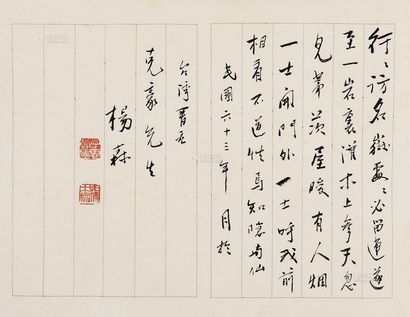 行〻訪名嶽處〻必留連遂
至一岩裏灌木上參天忽
見茅茨屋暖有人烟
一士開門外一士呼我前
相看不道姓焉知隱與仙
民國六十三年 月於
台灣
克豪先生
楊森